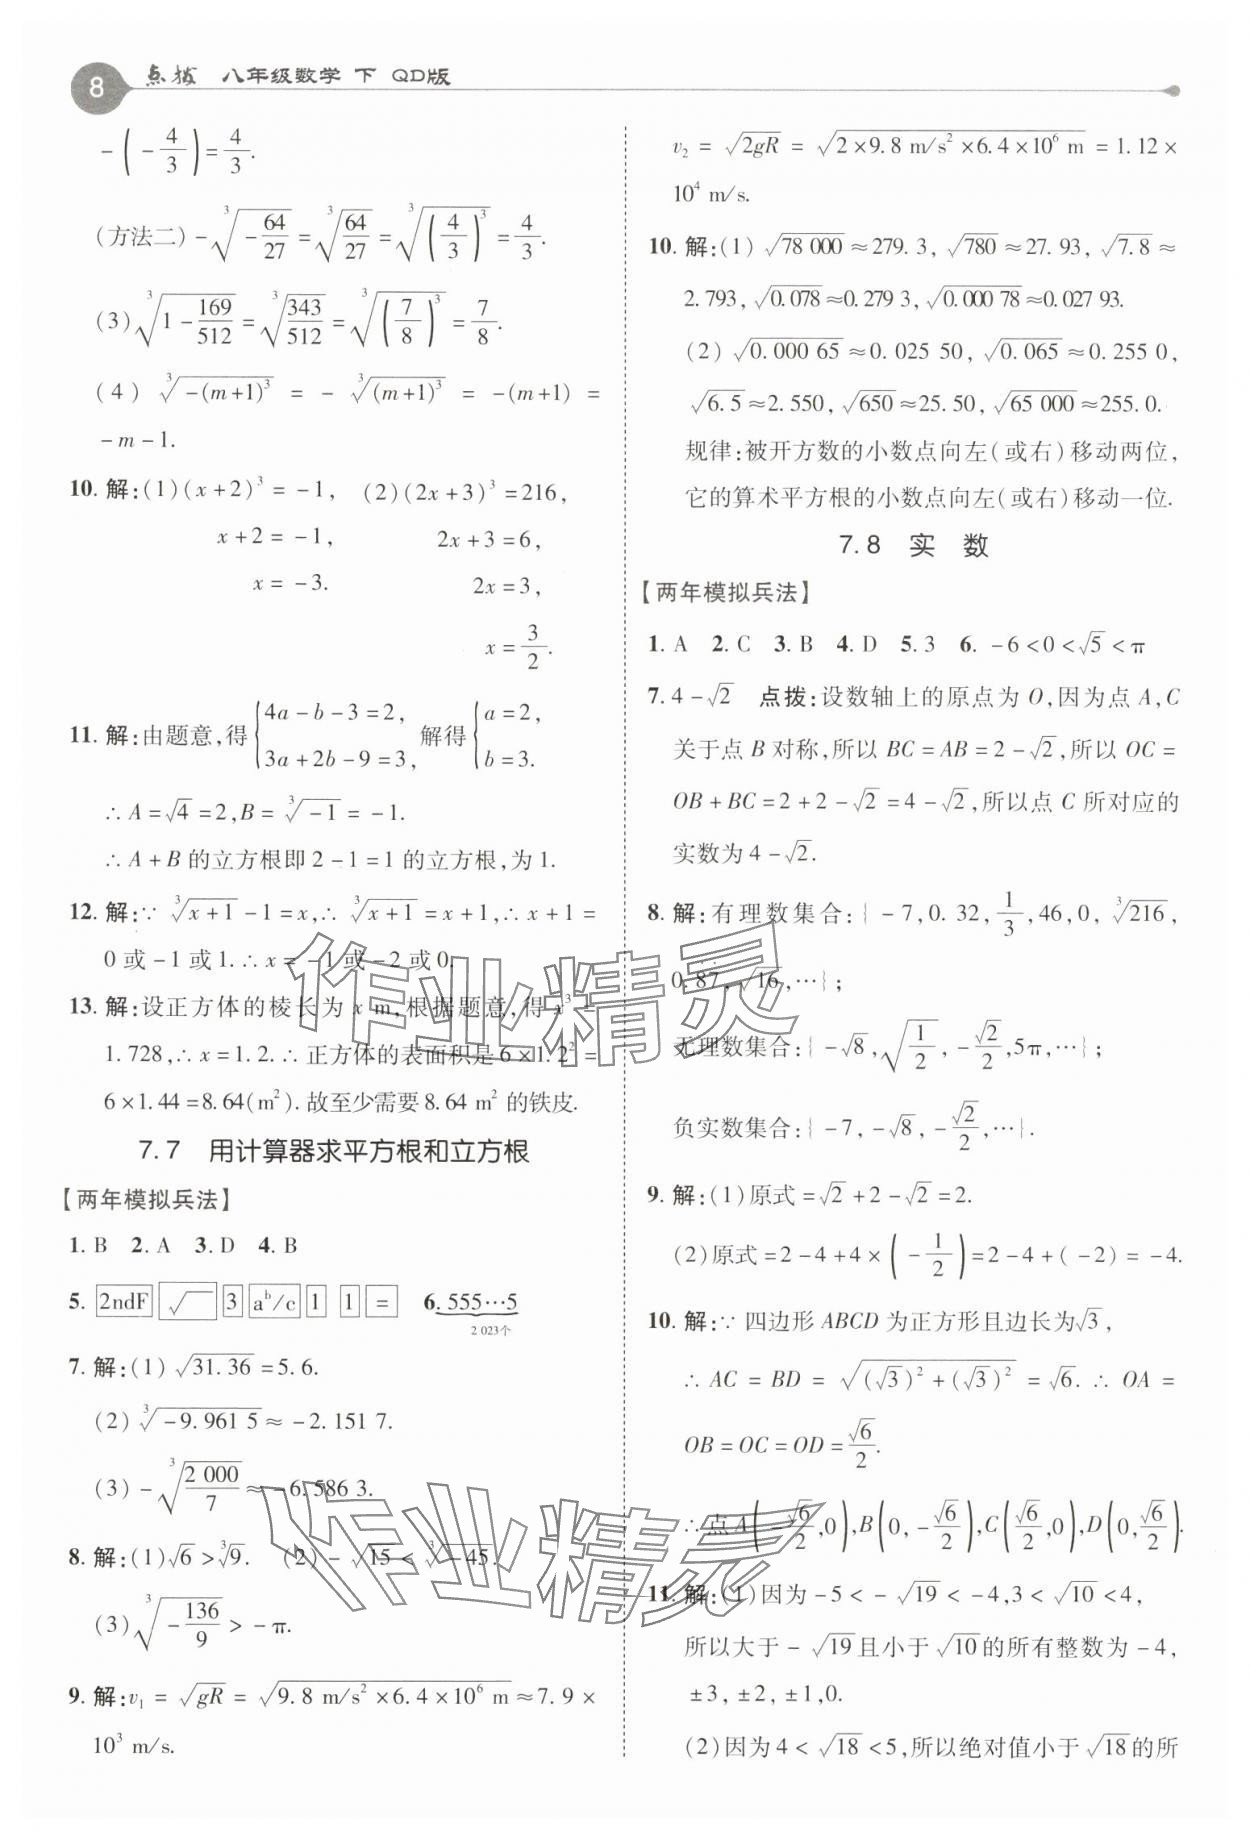 8 点拨 八年级数学 下 QD版
-(-4/3)=4/3.
(方法二)-∛(-64/27)=∛(64/27)=∛((4/3)³)=4/3.
(3)∛(1-169/512)=∛(343/512)=∛((7/8)³)=7/8.
(4) ∛(-(m+1)³) = -∛((m+1)³) = -(m+1) =
-m-1.
10. 解:(1)(x+2)³=-1, (2)(2x+3)³=216,
x+2=-1, 2x+3=6,
x=-3. 2x=3,
x=3/2.
11. 解:由题意,得{4a-b-3=2, 3a+2b-9=3, 解得{a=2, b=3.
∴A=√4=2,B=∛-1=-1.
∴A+B的立方根即2-1=1的立方根,为1.
12. 解:∵∛(x+1)-1=x,∴∛(x+1)=x+1,∴x+1=
0或-1或1.∴x=-1或-2或0.
13. 解:设正方体的棱长为x m,根据题意,得x³=
1.728,∴x=1.2.∴正方体的表面积是6×1.2²=
6×1.44=8.64(m²).故至少需要8.64 m²的铁皮.
7.7 用计算器求平方根和立方根
【两年模拟兵法】
1. B 2. A 3. D 4. B
5. 2ndF √ 3 aᵇ/c 1 1 = 6. 555…5
2 023个
7. 解:(1)√31.36=5.6.
(2)∛-9.961 5≈-2.151 7.
(3)-∛(2 000/7)≈-6.586 3.
8. 解:(1)√6>∛9. (2)-√15<∛-45.
(3)∛(-136/9)>-π.
9. 解:v₁=√gR=√(9.8 m/s²×6.4×10⁶ m)≈7.9×
10³ m/s.
v₂=√2gR=√(2×9.8 m/s²×6.4×10⁶ m)=1.12×
10⁴ m/s.
10. 解:(1)√78 000≈279.3,√780≈27.93,√7.8≈
2.793,√0.078≈0.279 3,√0.000 78≈0.027 93.
(2)√0.000 65≈0.025 50,√0.065≈0.255 0,
√6.5≈2.550,√650≈25.50,√65 000≈255.0.
规律:被开方数的小数点向左(或右)移动两位,
它的算术平方根的小数点向左(或右)移动一位.
7.8 实 数
【两年模拟兵法】
1. A 2. C 3. B 4. D 5. 3 6. -6<0<√5<π
7. 4-√2 点拨:设数轴上的原点为O,因为点A,C
关于点B对称,所以BC=AB=2-√2,所以OC=
OB+BC=2+2-√2=4-√2,所以点C所对应的
实数为4-√2.
8. 解:有理数集合:{-7,0.32,1/3,46,0,∛216,
0.8̇7̇,√16,…};
无理数集合:{-√8,√(1/2),-√2/2,5π,…};
负实数集合:{-7,-√8,-√2/2,…}.
9. 解:(1)原式=√2+2-√2=2.
(2)原式=2-4+4×(-1/2)=2-4+(-2)=-4.
10. 解:∵四边形ABCD为正方形且边长为√3,
∴AC=BD=√((√3)²+(√3)²)=√6.∴OA=
OB=OC=OD=√6/2.
∴点A(-√6/2,0),B(0,-√6/2),C(√6/2,0),D(0,√6/2).
11. 解:(1)因为-5<-√19<-4,3<√10<4,
所以大于-√19且小于√10的所有整数为-4,
±3,±2,±1,0.
(2)因为4<√18<5,所以绝对值小于√18的所
作业精灵
作业精灵